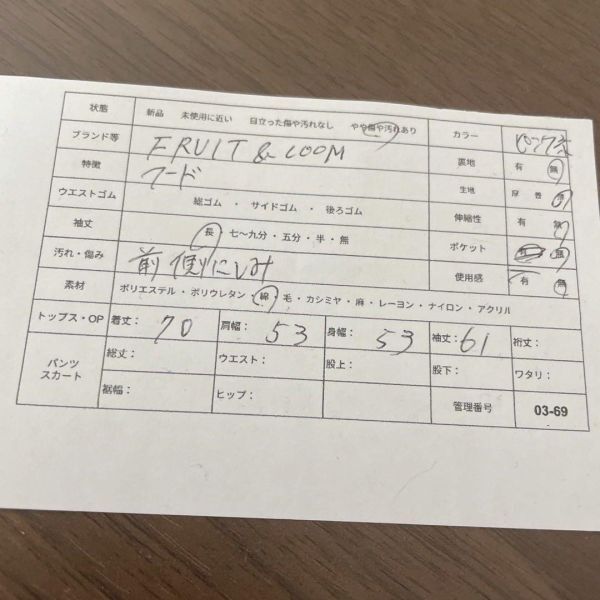 状態 新品 未使用に近い 目立った傷や汚れなし やや傷や汚れあり カラー ピンク系
ブランド等 FRUIT & LOOM 裏地 有 無
特徴 フード 生地 厚 普
ウエストゴム 総ゴム ・ サイドゴム ・ 後ろゴム 伸縮性 有 無
袖丈 長 ・ 七～九分 ・ 五分 ・ 半 ・ 無 ポケット 有 無
汚れ・傷み 前側にしみ 使用感 有 無
素材 ポリエステル ・ ポリウレタン ・ 綿 ・ 毛 ・ カシミヤ ・ 麻 ・ レーヨン ・ ナイロン ・ アクリル
トップス・OP 着丈： 70 肩幅： 53 身幅： 53 袖丈： 61 裄丈：
パンツ スカート 総丈： ウエスト： 股上： 股下： ワタリ：
裾幅： ヒップ： 管理番号 03-69